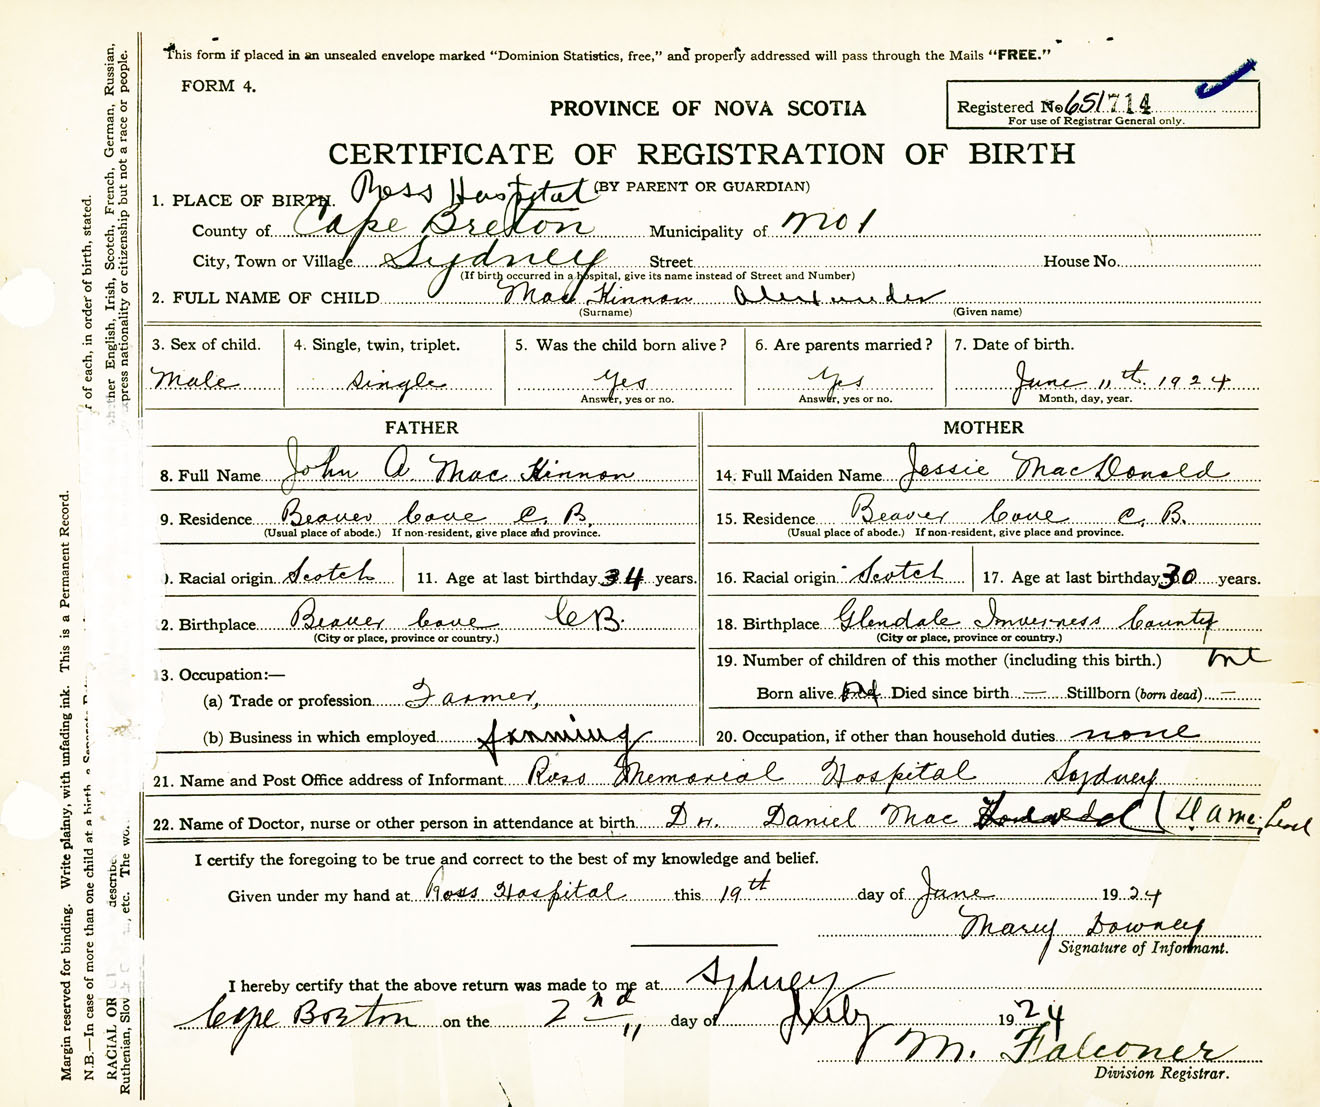 This form if placed in an unsealed envelope marked "Dominion Statistics, free," and properly addressed will pass through the Mails "FREE."
FORM 4.
PROVINCE OF NOVA SCOTIA
Registered No 651714
For use of Registrar General only.
CERTIFICATE OF REGISTRATION OF BIRTH
(BY PARENT OR GUARDIAN)
1. PLACE OF BIRTH. Ross Hospital
County of Cape Breton Municipality of No 1
City, Town or Village Sydney Street House No.
(If birth occurred in a hospital, give its name instead of Street and Number)
2. FULL NAME OF CHILD Mac Kinnon Alexander
(Surname) (Given name)
3. Sex of child. 4. Single, twin, triplet. 5. Was the child born alive? 6. Are parents married? 7. Date of birth.
Male single Yes Yes June 11th. 1924
Answer, yes or no. Answer, yes or no. Month, day, year.
FATHER MOTHER
8. Full Name John A. Mac Kinnon
9. Residence Beaver Cove C. B.
(Usual place of abode.) If non-resident, give place and province.
). Racial origin Scotch 11. Age at last birthday 34 years.
2. Birthplace Beaver Cove C B.
(City or place, province or country.)
3. Occupation:—
(a) Trade or profession Farmer,
(b) Business in which employed farming
14. Full Maiden Name Jessie MacDonald
15. Residence Beaver Cove C. B.
(Usual place of abode.) If non-resident, give place and province.
16. Racial origin Scotch 17. Age at last birthday 30 years.
18. Birthplace Glendale Inverness County
(City or place, province or country.)
19. Number of children of this mother (including this birth.)
Born alive Died since birth — Stillborn (born dead) —
20. Occupation, if other than household duties none
21. Name and Post Office address of Informant Ross Memorial Hospital Sydney
22. Name of Doctor, nurse or other person in attendance at birth Dr. Daniel Mac
I certify the foregoing to be true and correct to the best of my knowledge and belief.
Given under my hand at Ross Hospital this 19th day of June 1924
Mary Downey
Signature of Informant.
I hereby certify that the above return was made to me at Sydney
Cape Breton on the 2nd day of July 1924
M. Falconer
Division Registrar.
Margin reserved for binding. Write plainly, with unfading ink. This is a Permanent Record.
N.B.—In case of more than one child at a birth, a Separate
of each, in order of birth, stated.
RACIAL OR
describe
her English, Irish, Scotch, French, German, Russian,
Ruthenian, Slov , etc. The wo
xpress nationality or citizenship but not a race or people.